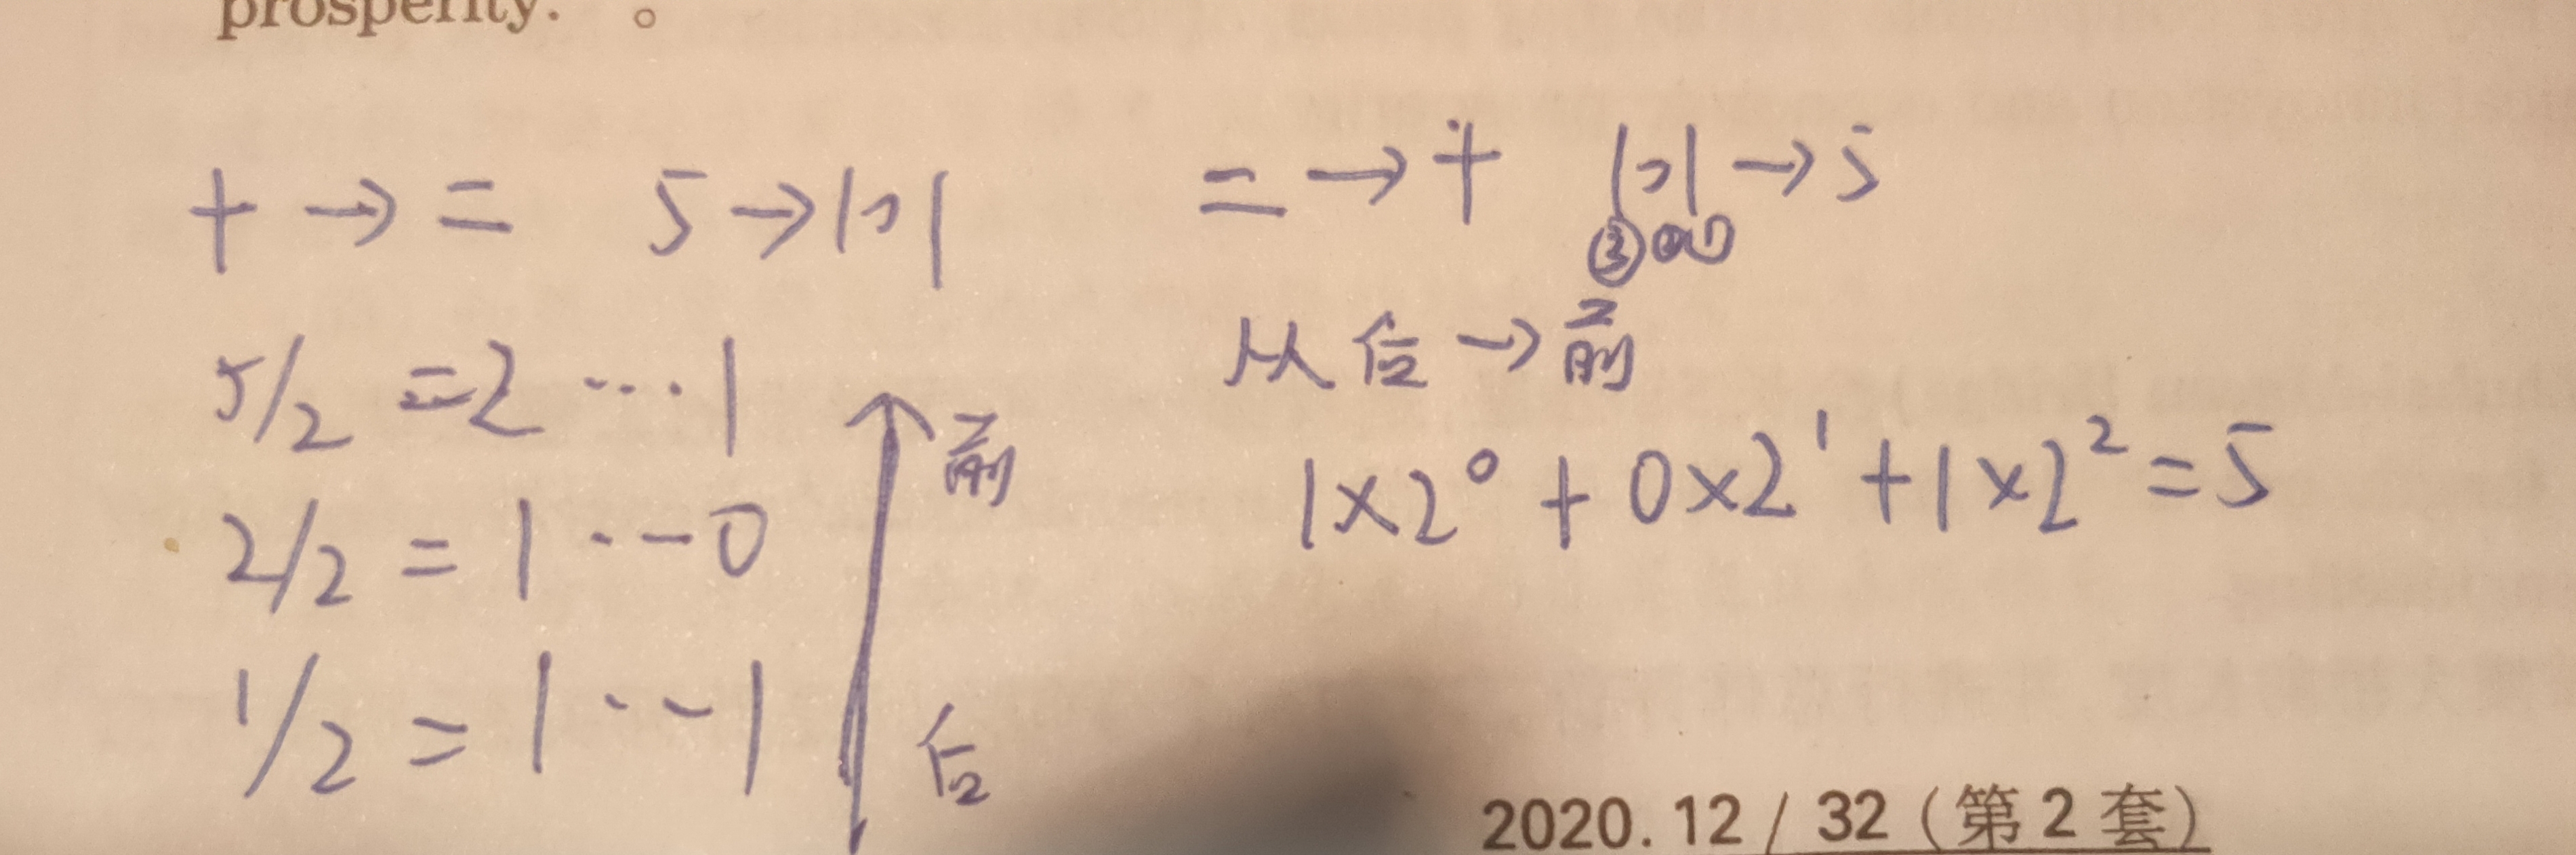 prosperity. 。
十 → 二 5 → 101
5/2 = 2 ··· 1
2/2 = 1 ··· 0
1/2 = 1 ··· 1
前
后
二 → 十 101 → 5
③②①
从后 → 前
1×2⁰ + 0×2¹ + 1×2² = 5
2020. 12 / 32（第 2 套）